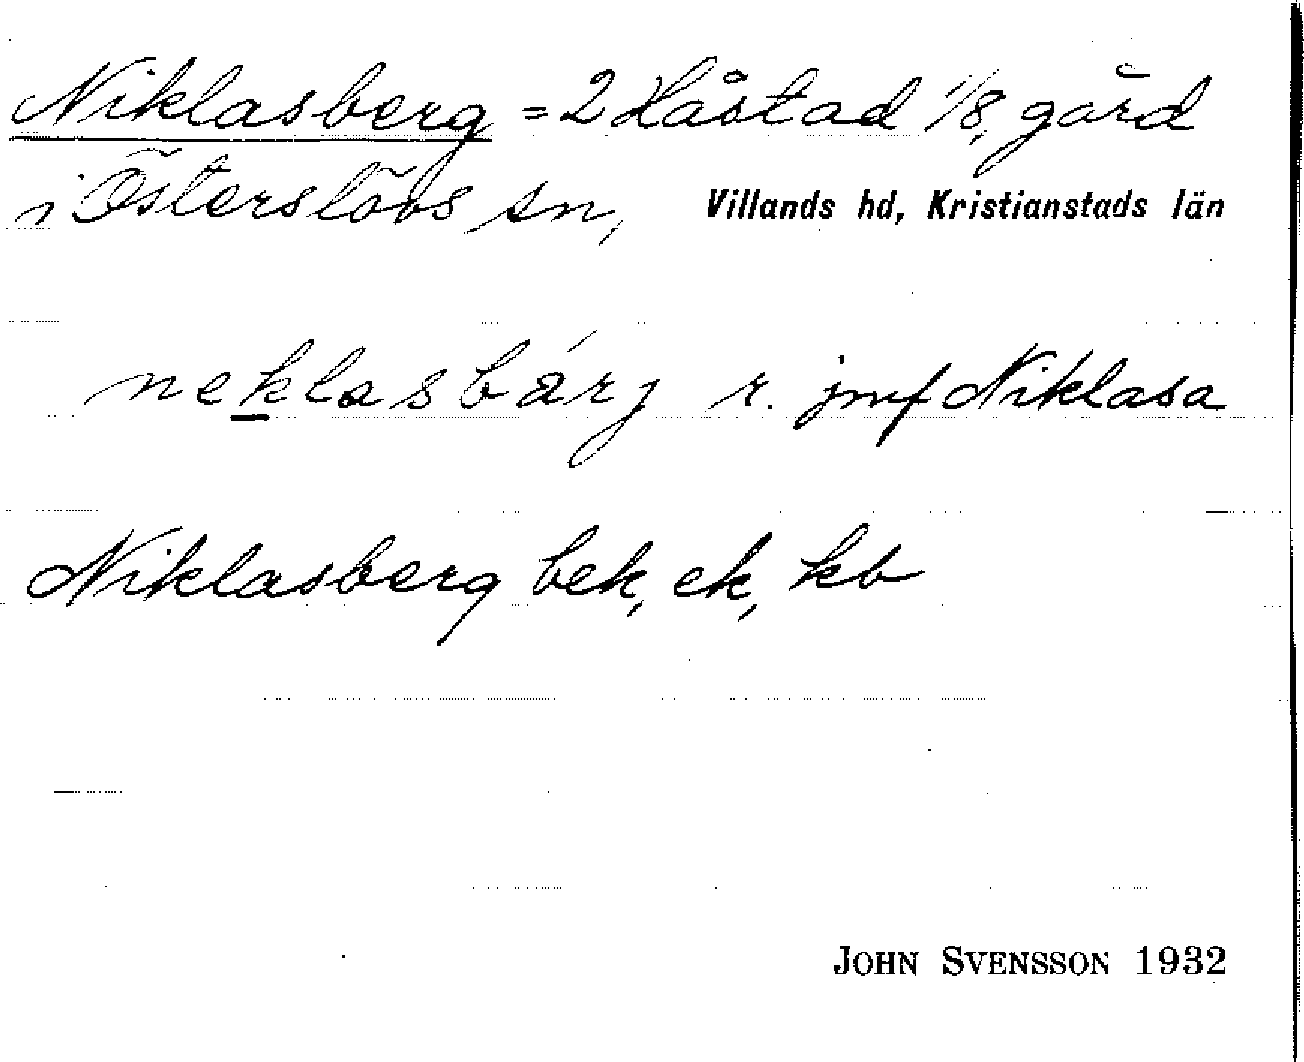 Niklasberg = 2 Håstad 1/8, gård
i Österslövs sn, Villands hd, Kristianstads län
neklasbárj r. jmf Niklasa
Niklasberg bek, ek, kb
JOHN SVENSSON 1932